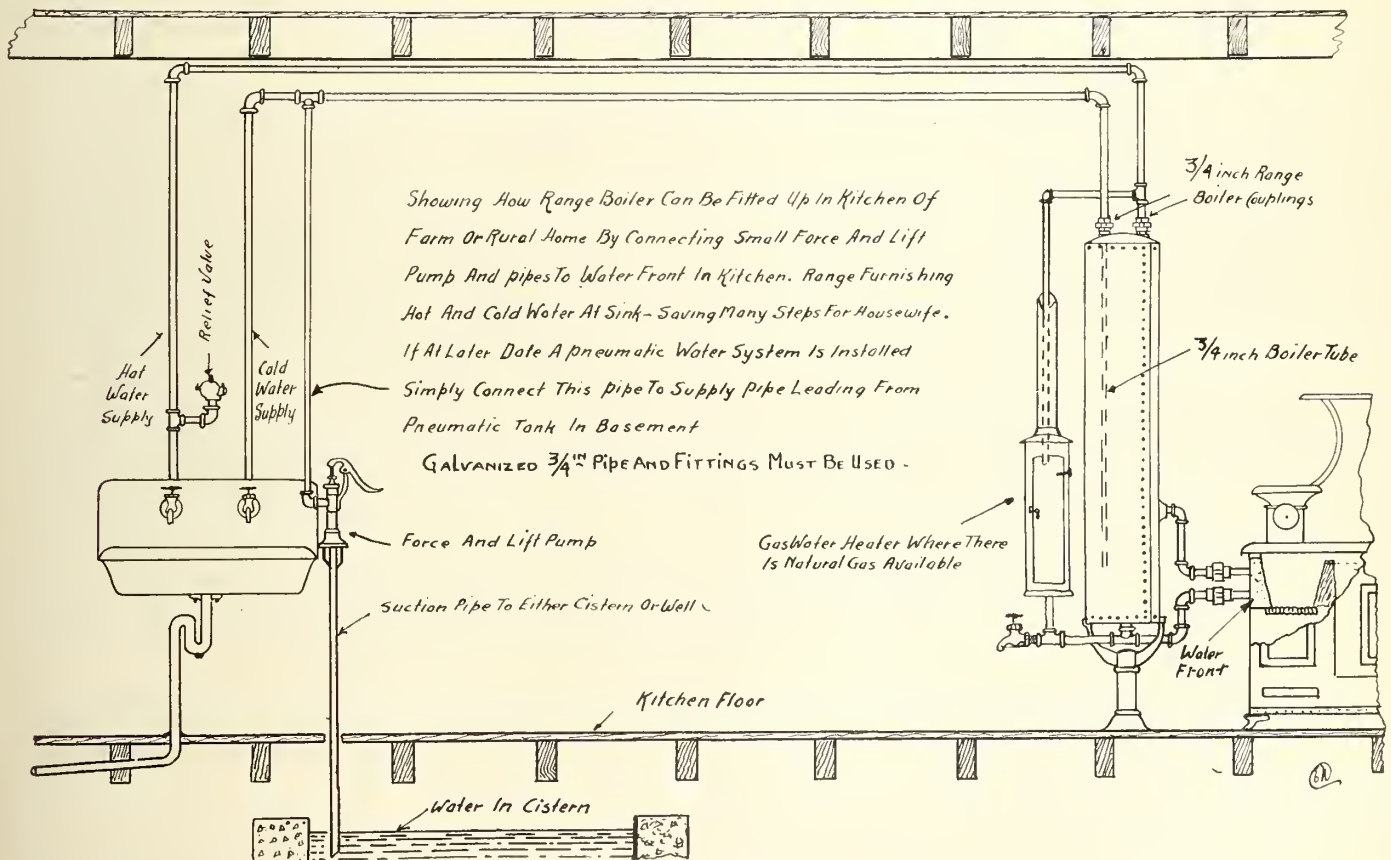 Showing How Range Boiler Can Be Fitted Up In Kitchen Of
Farm Or Rural Home By Connecting Small Force And Lift
Pump And pipes To Water Front In Kitchen. Range Furnishing
Hot And Cold Water At Sink - Saving Many Steps For Housewife.
If At Later Date A pneumatic Water System Is Installed
Simply Connect This pipe To Supply Pipe Leading From
Pneumatic Tank In Basement
GALVANIZED 3/4 IN PIPE AND FITTINGS MUST BE USED -
3/4 inch Range
Boiler Couplings
Relief Valve
Hot
Water
Supply
Cold
Water
Supply
3/4 inch Boiler Tube
Force And Lift Pump
Gas Water Heater Where There
Is Natural Gas Available
Suction Pipe To Either Cistern Or Well
Water
Front
Kitchen Floor
Water In Cistern